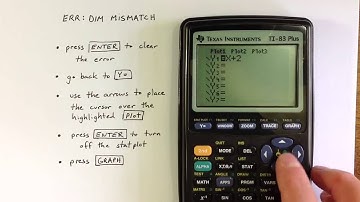 ERR: DIM MISMATCH
• press ENTER to clear
the error
• go back to Y=
• use the arrows to place
the cursor over the
highlighted Plot
• press ENTER to turn
off the stat plot
• press GRAPH
TEXAS INSTRUMENTS TI-83 Plus
Plot1 Plot2 Plot3
\Y1=X+2
\Y2=
\Y3=
\Y4=
\Y5=
\Y6=
\Y7=
Y= WINDOW ZOOM TRACE GRAPH
2nd MODE DEL
A-LOCK LINK LIST
ALPHA X,T,θ,n STAT
MATH APPS PRGM
SIN COS